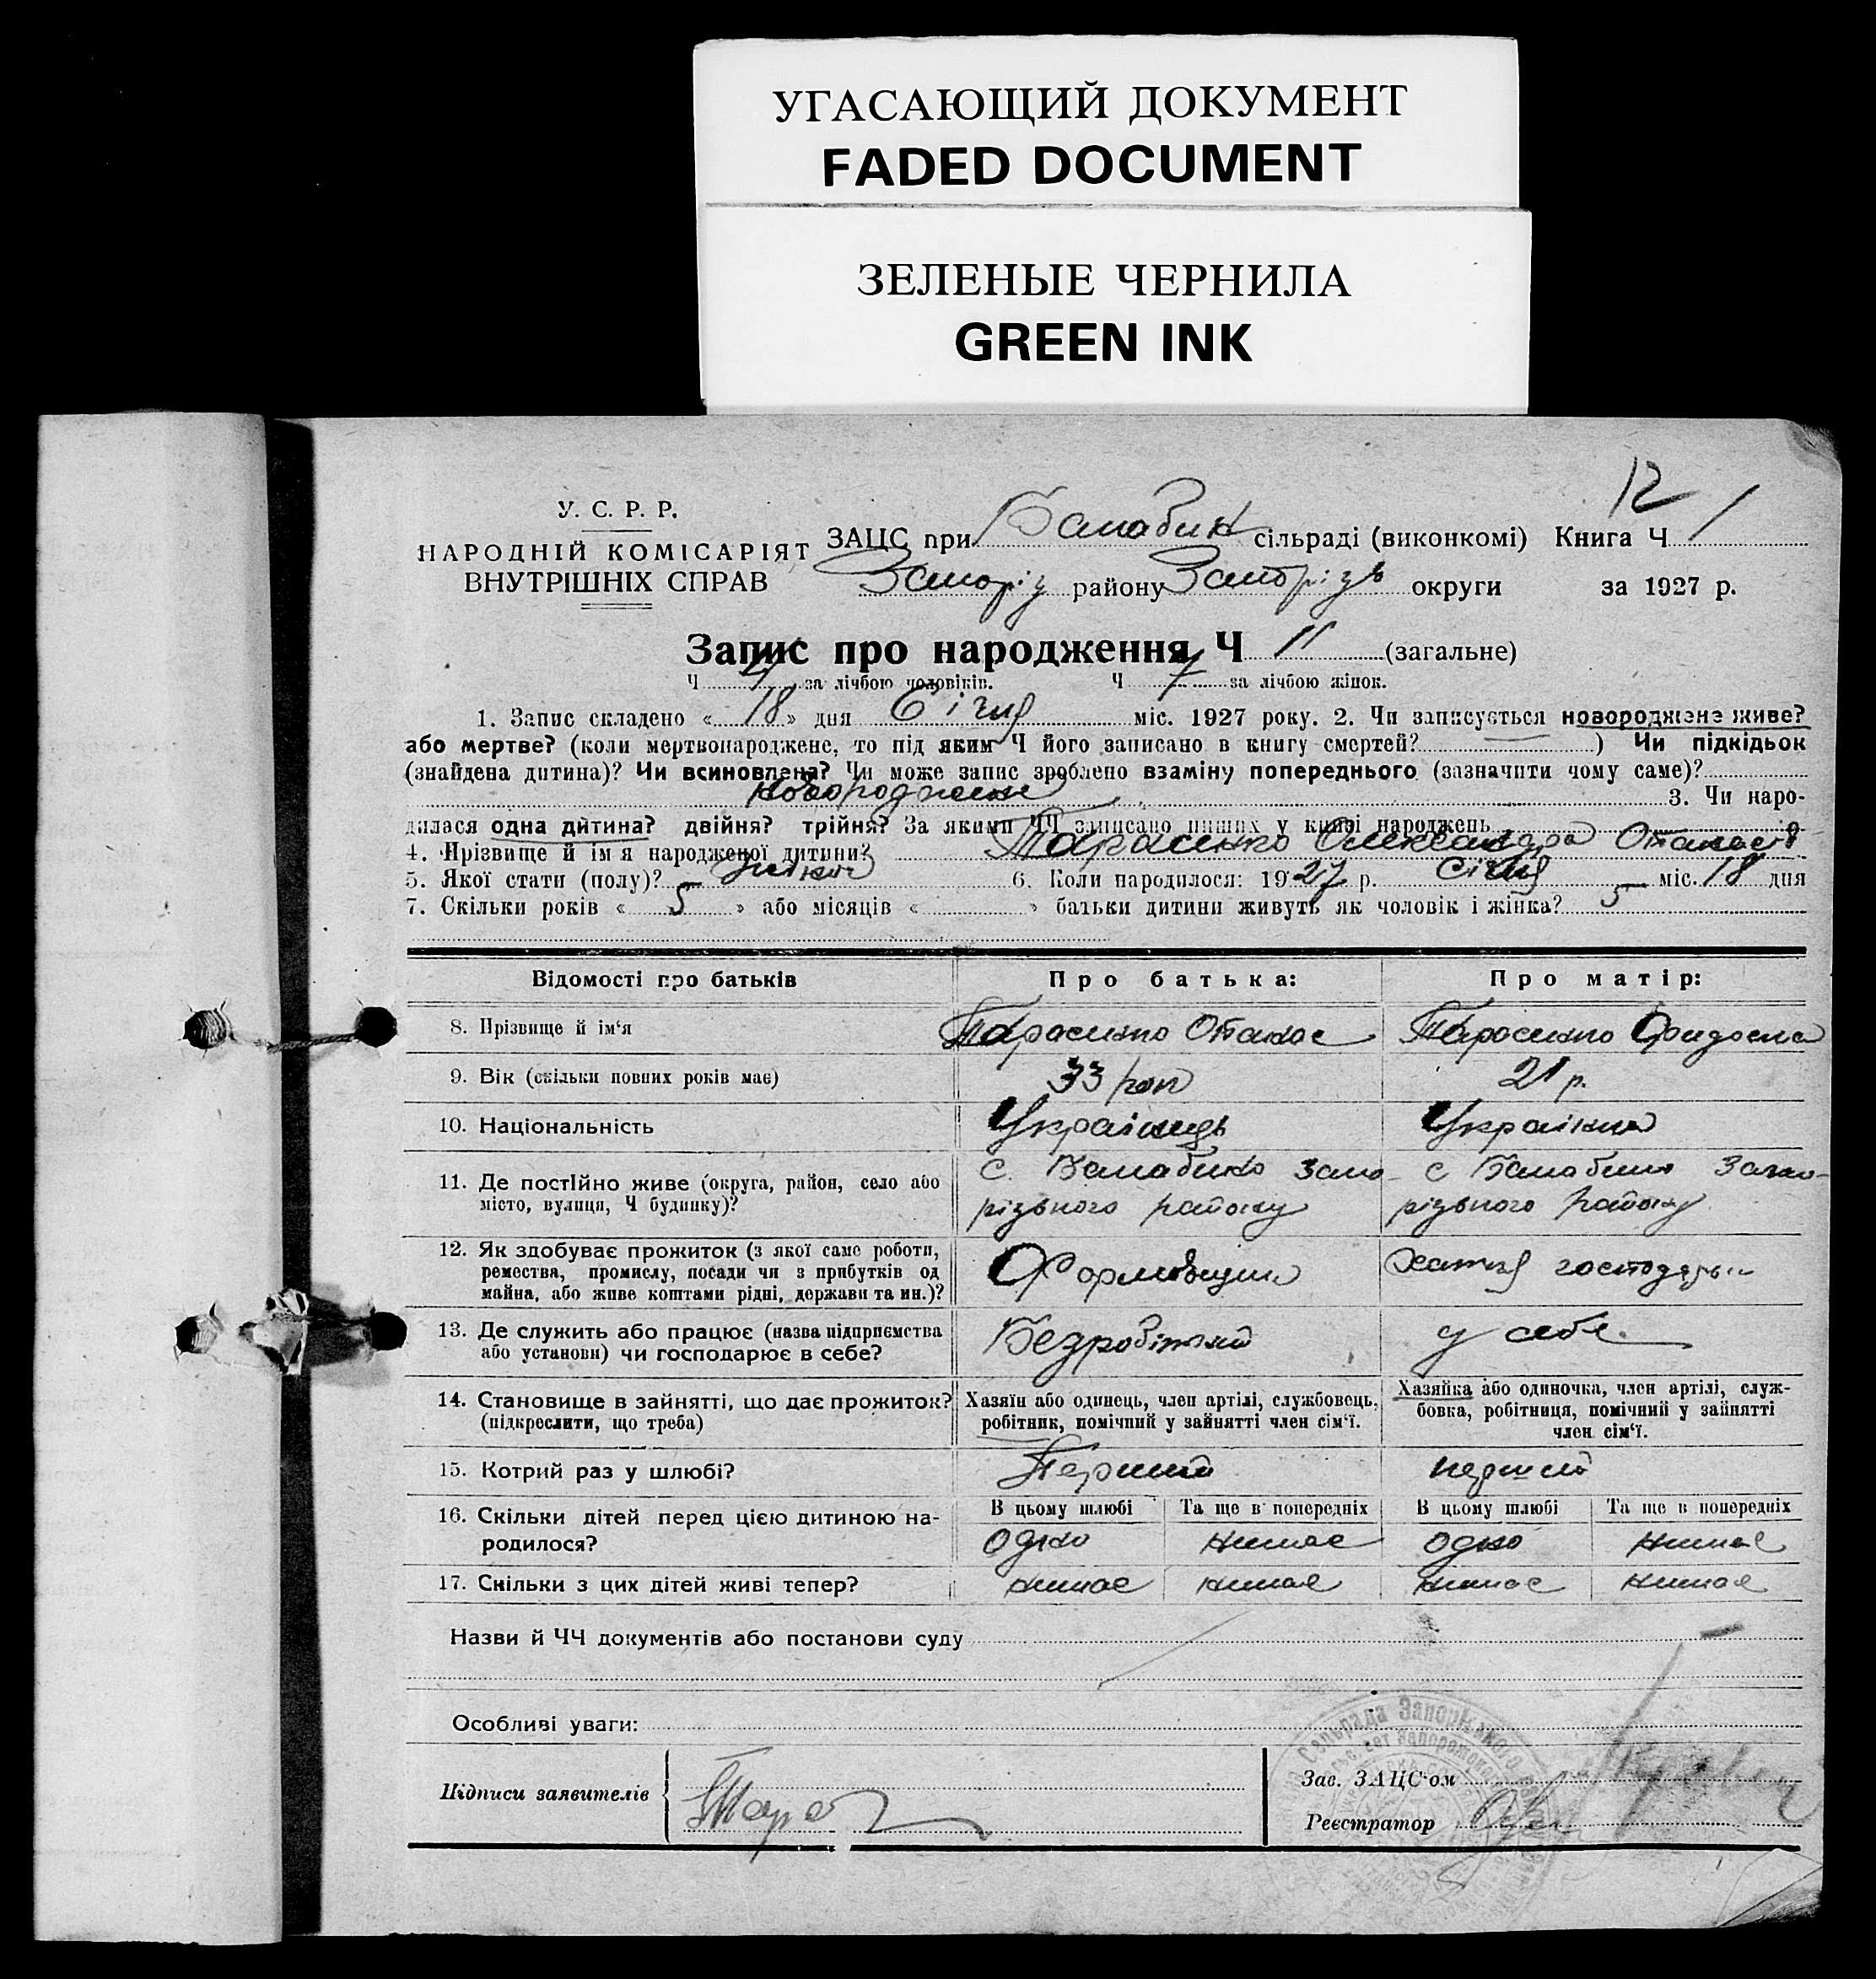 УГАСАЮЩИЙ ДОКУМЕНТ
FADED DOCUMENT
ЗЕЛЕНЫЕ ЧЕРНИЛА
GREEN INK
12
У. С. Р. Р.
НАРОДНІЙ КОМІСАРІЯТ
ВНУТРІШНІХ СПРАВ
ЗАЦС при Балабин сільраді (виконкомі) Книга Ч 1
Запоріз району Запорізь округи за 1927 р.
Запис про народження Ч 11 (загальне)
Ч 4 за лічбою чоловіків. Ч 7 за лічбою жінок.
1. Запис складено « 18 » дня Січня міс. 1927 року. 2. Чи записується новороджене живе?
або мертве? (коли мертвонароджене, то під яким Ч його записано в книгу смертей? ) Чи підкідьок
(знайдена дитина)? Чи всиновлена? Чи може запис зроблено взаміну попереднього (зазначити чому саме)?
новороджене 3. Чи наро-
дилася одна дитина? двійня? трійня? За якими ЧЧ записано инших у книзі народжень
4. Прізвище й ім'я народженої дитини? Тарасенко Олександра Отанасів
5. Якої стати (полу)? Жіночої 6. Коли народилося: 1927 р. Січня міс. 18 дня
7. Скільки років « 5 » або місяців « » батьки дитини живуть як чоловік і жінка? 5
Відомості про батьків Про батька: Про матір:
8. Прізвище й ім'я Тарасенко Отанас Тарасенко Федосия
9. Вік (скільки повних років має) 33 рок 21 р.
10. Національність Українець Українка
11. Де постійно живе (округа, район, село або місто, вулиця, Ч будинку)? с. Балабино Запо-
різького району с Балабино Запо-
різького району
12. Як здобуває прожиток (з якої саме роботи,
ремества, промислу, посади чи з прибутків од
майна, або живе коштами рідні, держави та ин.)? Формовщик Хатня господарьк
13. Де служить або працює (назва підприємства
або установи) чи господарює в себе? Безробітний у себе
14. Становище в зайнятті, що дає прожиток?
(підкреслити, що треба)
Хазяїн або одинець, член артілі, службовець,
робітник, помічний у зайнятті член сім'ї.
Хазяйка або одиночка, член артілі, служ-
бовка, робітниця, помічний у зайнятті
член сім'ї.
15. Котрий раз у шлюбі? Первий первий
В цьому шлюбі Та ще в попередніх В цьому шлюбі Та ще в попередніх
16. Скільки дітей перед цією дитиною на-
родилося? Одно немає одно немає
17. Скільки з цих дітей живі тепер? немає немає немає немає
Назви й ЧЧ документів або постанови суду
Особливі уваги:
Підписи заявителів Тара
Зав. ЗАЦС'ом
Реєстратор
Сельрада Запорізького